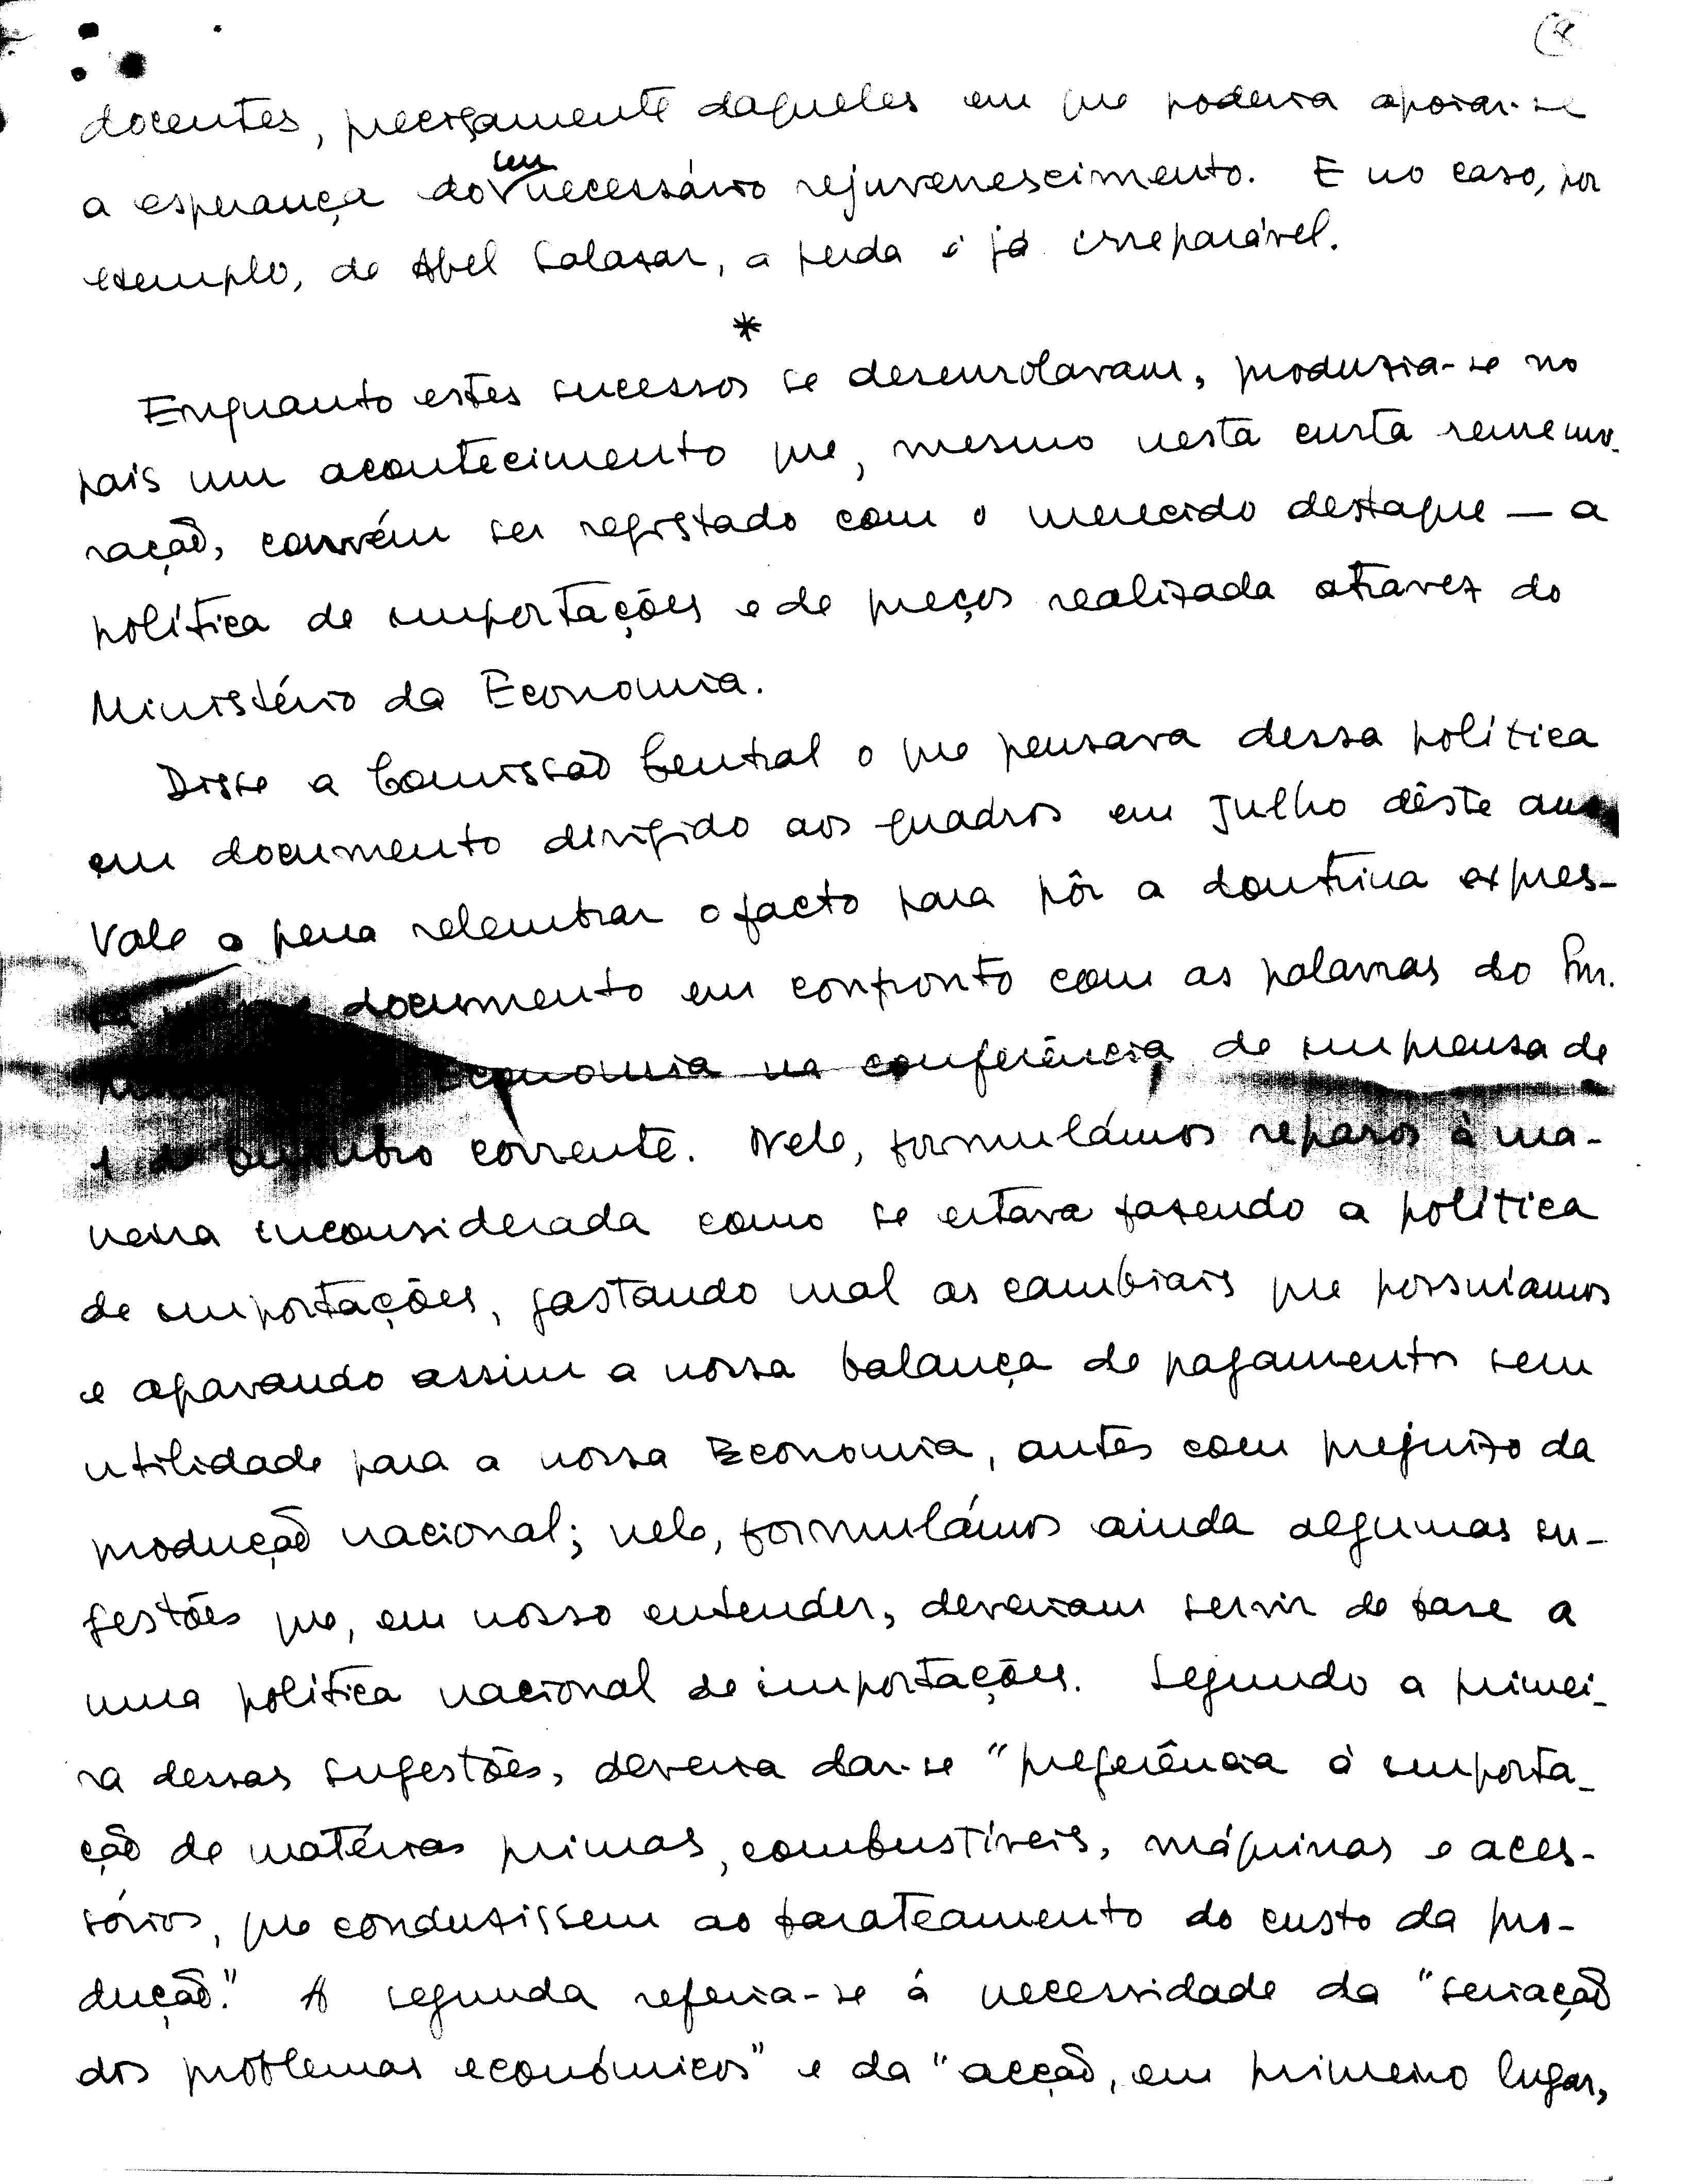 (8
docentes, precisamente daqueles em que poderia apoiar-se
seu
a esperança do necessário rejuvenescimento. E no caso, por
exemplo, de Abel Salazar, a perda é já irreparável.
*
Enquanto estes sucessos se desenrolavam, produzia-se no
país um acontecimento que, mesmo nesta curta rememo-
ração, convém ser registado com o merecido destaque — a
política de importações e de preços realizada atravez do
Ministério da Economia.
Disse a Comissão Central o que pensava dessa política
em documento dirigido aos quadros em Julho dêste ano
Vale a pena relembrar o facto para pôr a doutrina expres-
documento em confronto com as palavras do Snr.
Economia na conferência de imprensa de
1 de corrente. Nele, formulámos reparos à ma-
neira inconsiderada como se estava fazendo a política
de importações, gastando mal as cambiais que possuíamos
e agravando assim a nossa balança de pagamentos sem
utilidade para a nossa Economia, antes com prejuízo da
produção nacional; nele, formulámos ainda algumas su-
gestões que, em nosso entender, deveriam servir de base a
uma política nacional de importações. Segundo a primei-
ra dessas sugestões, deveria dar-se "preferência à importa-
ção de matérias primas, combustíveis, máquinas e aces-
sórios, que conduzissem ao barateamento do custo da pro-
dução." A segunda referia-se à necessidade da "seriação
dos problemas económicos" e da "acção, em primeiro lugar,